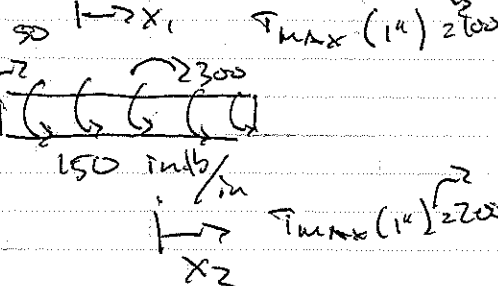 50 x₁ TMAX (1") 2400
2300
150 in·lb/in
TMAX (1") 2200
x₂